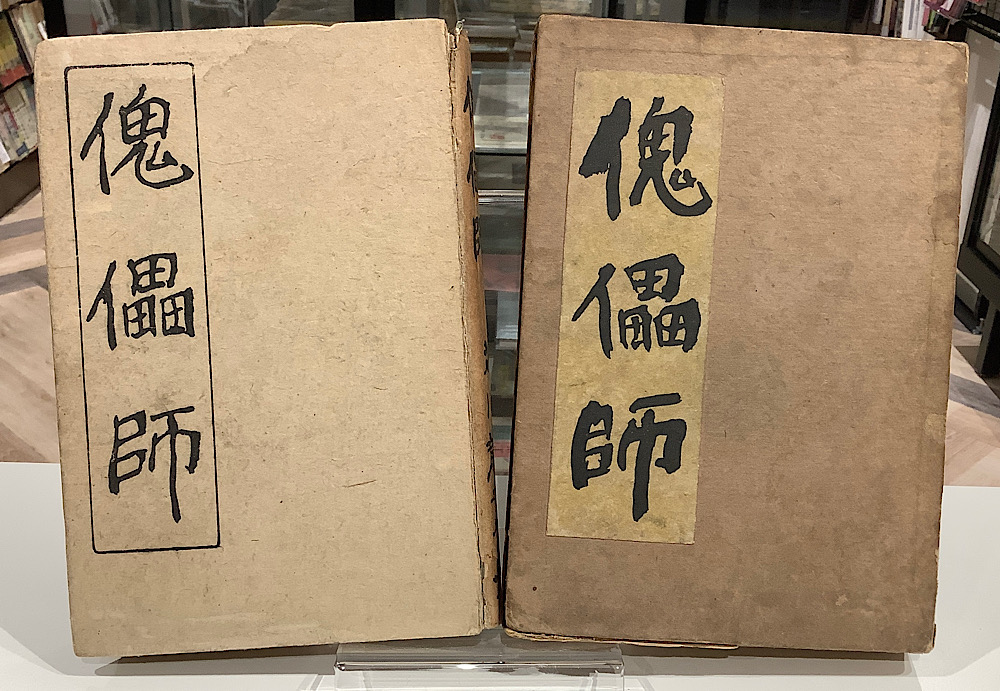 傀儡師
傀儡師